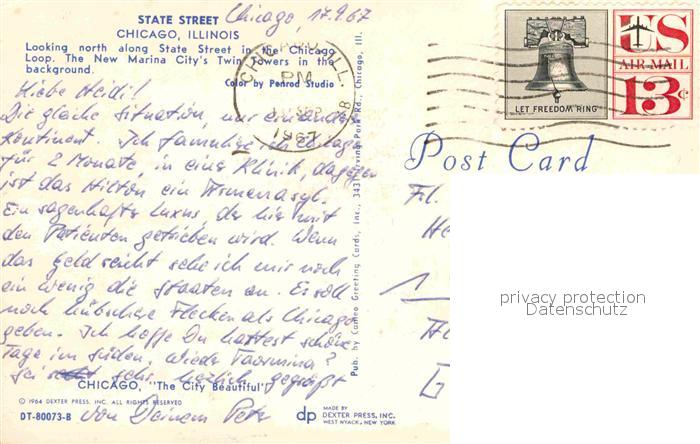 STATE STREET
CHICAGO, ILLINOIS
Looking north along State Street in the Chicago
Loop. The New Marina City's Twin Towers in the
background.
Color by Penrod Studio
Chicago, 17.9.67
Liebe Heidi!
Die gleiche Situation, nur ein ander
Kontinent. Ich famuliere in Chicago
für 2 Monate, in einer Klinik, dagegen
ist das Hilton ein Armenasyl.
Ein sagenhafter Luxus, der hier mit
den Patienten getrieben wird. Wenn
das Geld reicht sehe ich mir noch
ein wenig die Staaten an. Es soll
noch hübschere Flecken als Chicago
geben. Ich hoffe Du hattest schöne
Tage im Süden. Wieder Taormina?
Sei sehr herzlich gegrüßt
von Deinem Peter
CHICAGO, "The City Beautiful"
© 1964 DEXTER PRESS, INC. ALL RIGHTS RESERVED
DT-80073-B
dp
MADE BY
DEXTER PRESS, INC.
WEST NYACK, NEW YORK
Pub. by Cameo Greeting Cards, Inc., 3431 Irving Park Rd., Chicago, Ill.
CHICAGO, ILL.
PM
1967
LET FREEDOM RING
US
AIR MAIL
13c
Post Card
Frl.
privacy protection
Datenschutz